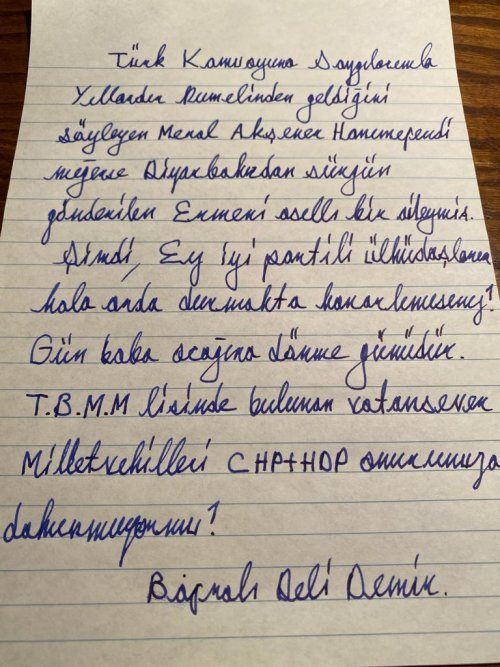 Türk Kamuoyuna Saygılarımla
Yıllardır Rumelinden geldiğini
söyleyen Meral Akşener Hanımefendi
meğerse Diyarbakırdan sürgün
gönderilen Ermeni asıllı bir aileymiş.
Şimdi, Ey iyi partili ülküdaşlarım
hala orda durmakta kararlımısınız!
Gün baba ocağına dönme günüdür.
T.B.M.M lisinde bulunan vatansever
Milletvekilleri CHP+HDP onurunuza
dokunmuyormu!
Bafralı Deli Demir.